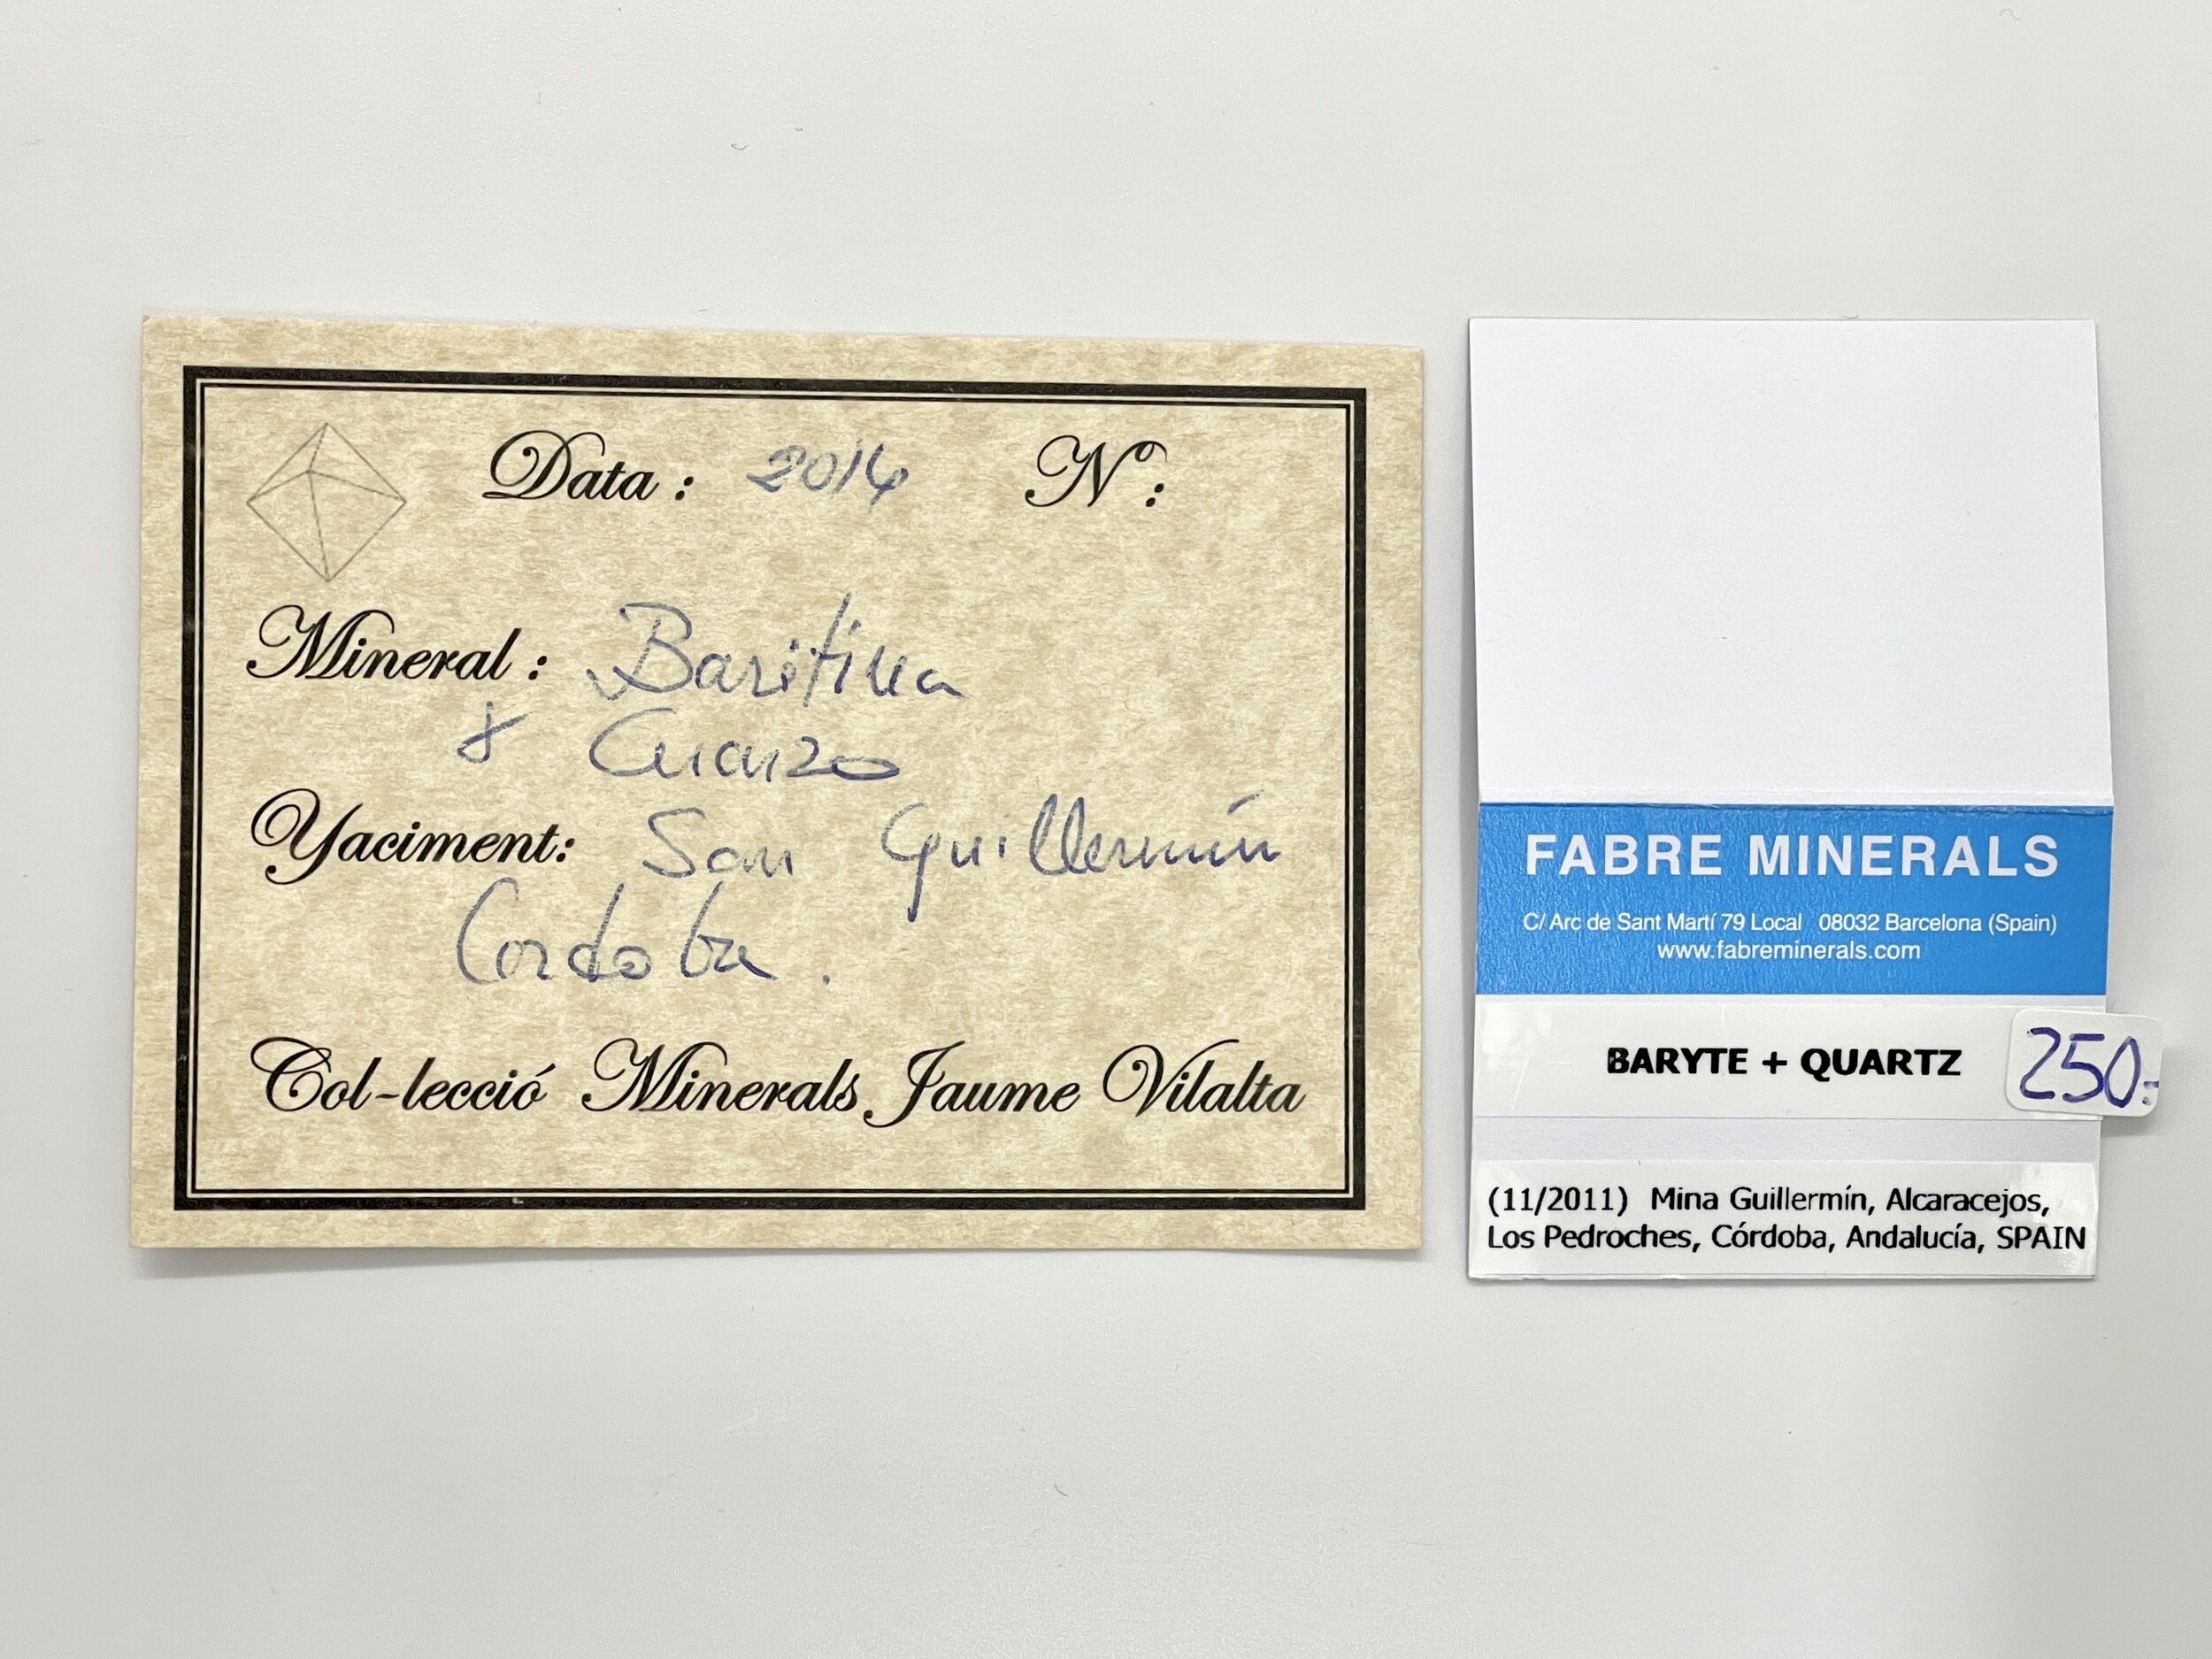 Data : 2014 Nº:
Mineral : Baritina
& Cuarzo
Yaciment: San Guillermín
Cordoba.
Col-lecció Minerals Jaume Vilalta
FABRE MINERALS
C/ Arc de Sant Martí 79 Local 08032 Barcelona (Spain)
www.fabreminerals.com
BARYTE + QUARTZ
250.-
(11/2011) Mina Guillermín, Alcaracejos,
Los Pedroches, Córdoba, Andalucía, SPAIN